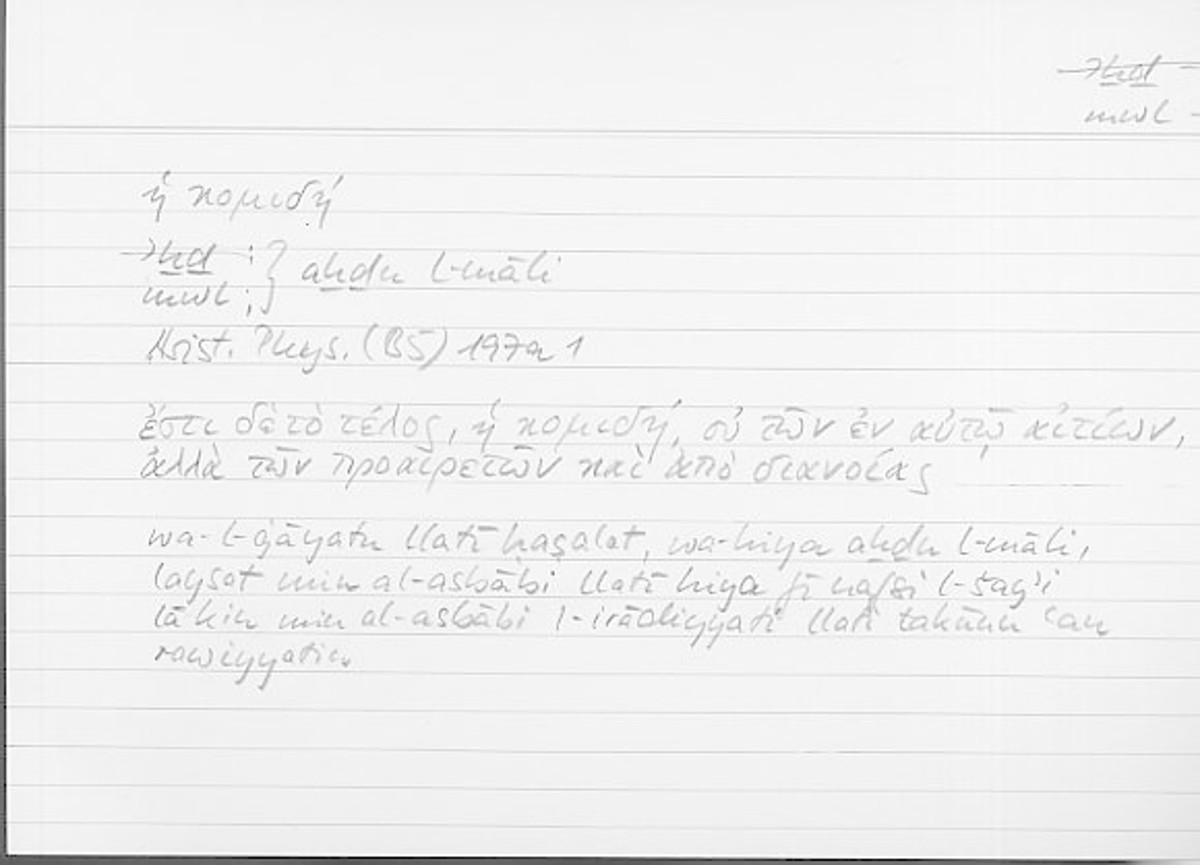 ʾḫḏ
mwl
ἡ κομιδή
ʾḫḏ ;
mwl ; } aḫḏu l-māli
Arist. Phys. (B5) 197a 1
ἔστι δὲ τὸ τέλος, ἡ κομιδή, οὐ τῶν ἐν αὑτῷ αἰτίων,
ἀλλὰ τῶν προαιρετῶν καὶ ἀπὸ διανοίας
wa-l-ġāyatu llatī ḥaṣalat, wa-hiya aḫḏu l-māli,
laysat min al-asbābi llatī hiya fī nafsi l-šayʾi
lākin min al-asbābi l-irādiyyati llatī takūnu ʿan
rawiyyatin.